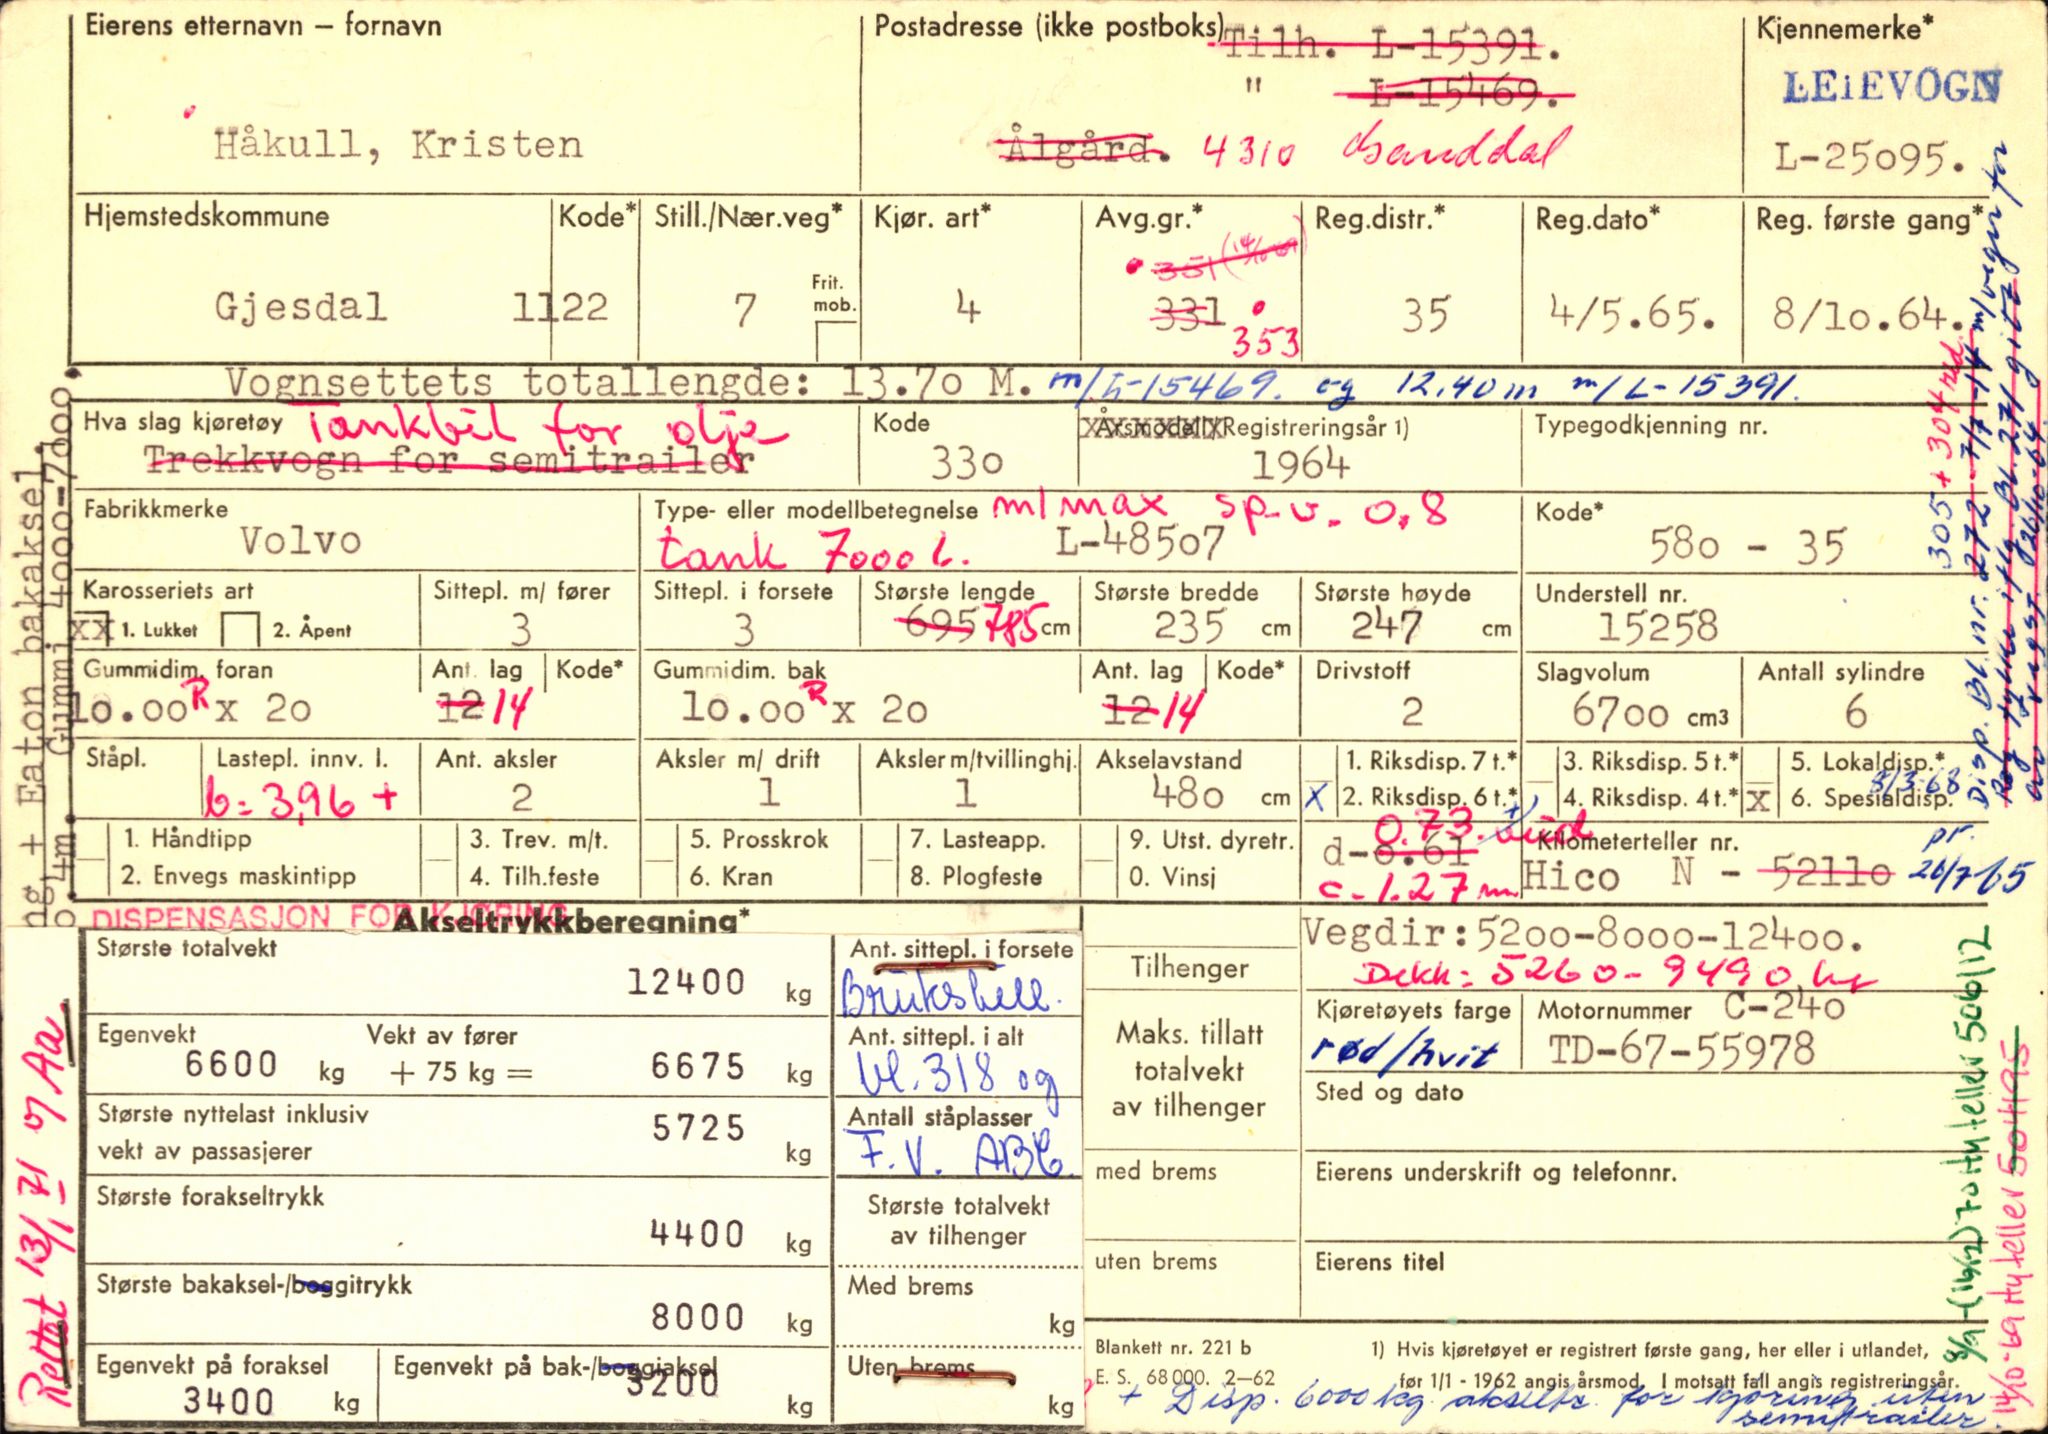 Eierens etternavn – fornavn
Håkull, Kristen
Postadresse (ikke postboks)
Tilh. L-15391.
" L-15469.
Ålgård. 4310
Kjennemerke*
LEiEVOGN
L-25095.
Hjemstedskommune
Gjesdal
Kode*
1122
Still./Nær.veg*
7
Frit. mob.
Kjør. art*
4
Avg.gr.*
351 (14/10-69)
331
353
Reg.distr.*
35
Reg.dato*
4/5.65.
Reg. første gang*
8/10.64.
Vognsettets totallengde: 13.70 M. m/L-15469. og 12.40 m m/L-15391.
Hva slag kjøretøy
Tankbil for olje
Trekkvogn for semitrailer
Kode
330
Årsmodell/Registreringsår 1)
1964
Typegodkjenning nr.
Fabrikkmerke
Volvo
Type- eller modellbetegnelse m/max sp.v. 0,8
tank 7000 l. L-48507
Kode*
580 - 35
Karosseriets art
XX 1. Lukket 2. Åpent
Sittepl. m/ fører
3
Sittepl. i forsete
3
Største lengde
695 785 cm
Største bredde
235 cm
Største høyde
247 cm
Understell nr.
15258
Gummidim. foran
10.00 R x 20
Ant. lag
12 14
Kode*
Gummidim. bak
10.00 R x 20
Ant. lag
12 14
Kode*
Drivstoff
2
Slagvolum
6700 cm3
Antall sylindre
6
Ståpl.
Lastepl. innv. l.
b = 3,96 +
Ant. aksler
2
Aksler m/ drift
1
Aksler m/tvillinghj.
1
Akselavstand
480 cm
1. Riksdisp. 7 t.*
X 2. Riksdisp. 6 t.*
3. Riksdisp. 5 t.*
4. Riksdisp. 4 t.*
5. Lokaldisp.*
8/3-68
X 6. Spesialdisp.
1. Håndtipp
2. Envegs maskintipp
3. Trev. m/t.
4. Tilh.feste
5. Prosskrok
6. Kran
7. Lasteapp.
8. Plogfeste
9. Utst. dyretr.
0. Vinsj
0.73
d-0.61
c-1.27 m
Kilometerteller nr.
Hico N - 52110
pr. 26/7 65
DISPENSASJON FOR KJØRING
Akseltrykkberegning*
Største totalvekt
12400 kg
Egenvekt
6600 kg
Vekt av fører
+ 75 kg =
6675 kg
Største nyttelast inklusiv
vekt av passasjerer
5725 kg
Største forakseltrykk
4400 kg
Største bakaksel-/boggitrykk
8000 kg
Egenvekt på foraksel
3400 kg
Egenvekt på bak-/boggiaksel
3200 kg
Ant. sittepl. i forsete
Brukstill.
Ant. sittepl. i alt
bl. 318 og
Antall ståplasser
F.V. ABC.
Største totalvekt
av tilhenger
Med brems
kg
Uten brems
kg
Tilhenger
Maks. tillatt
totalvekt
av tilhenger
med brems
uten brems
Vegdir: 5200-8000-12400.
Dekk: 5260 - 9490 kg
Kjøretøyets farge
rød/hvit
Motornummer C-240
TD-67-55978
Sted og dato
Eierens underskrift og telefonnr.
Eierens titel
Blankett nr. 221 b
E. S. 68 000. 2—62
1) Hvis kjøretøyet er registrert første gang, her eller i utlandet,
før 1/1 - 1962 angis årsmod. I motsatt fall angis registreringsår.
+ Disp. 6000 kg. akseltr. for kjøring uten
semitrailer.
ng + Eaton bakaksel.
0.4m. Gummi 4000-7000.
Rettet 13/1 71
305 + 304 rød.
Disp. Bl.nr. 272 - 7/7-14 m/vegn for